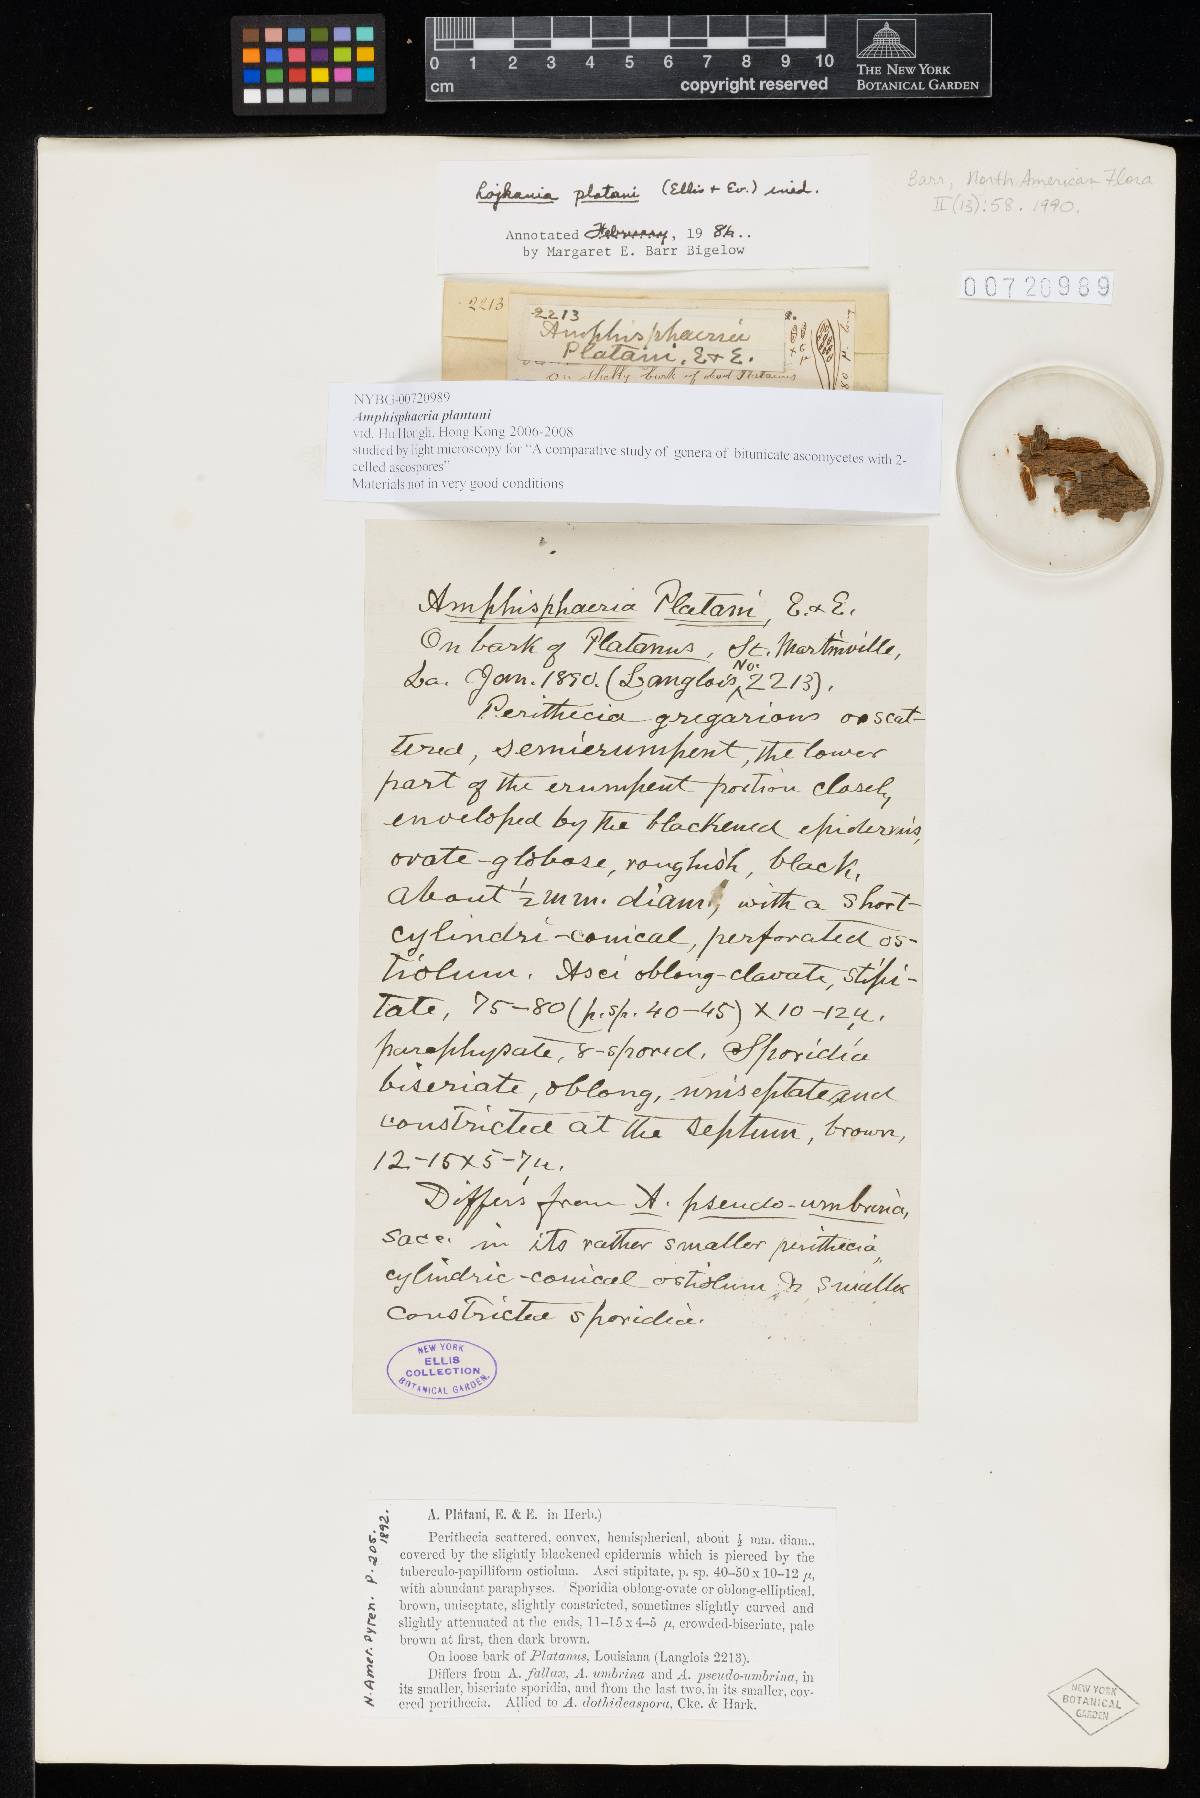 0 1 2 3 4 5 6 7 8 9 10
cm
copyright reserved
THE NEW YORK
BOTANICAL GARDEN
Lojkania platani (Ellis + Ev.) ined.
Annotated February, 19 84..
by Margaret E. Barr Bigelow
Barr, North American Flora
II (13): 58. 1990.
00720989
2213
2213
Amphisphaeria
Platani, E & E.
on shelly bark of dead Platanus
80 µ. long
NYBG-00720989
Amphisphaeria plantani
vid. Hu Hongli, Hong Kong 2006-2008
studied by light microscopy for "A comparative study of genera of bitunicate ascomycetes with 2-
celled ascospores"
Materials not in very good conditions
Amphisphaeria Platani, E. & E.
On bark of Platanus, St. Martinville,
La. Jan. 1890. (Langlois, No. 2213).
Perithecia gregarious or scat-
tered, semierumpent, the lower
part of the erumpent portion closely
enveloped by the blackened epidermis,
ovate-globose, roughish, black,
about ½ mm. diam, with a short-
cylindri-conical, perforated os-
tiolum. Asci oblong-clavate, stipi-
tate, 75–80 (p.sp. 40–45) x 10–12 µ.
paraphysate, 8-spored. Sporidia
biseriate, oblong, uniseptate and
constricted at the septum, brown,
12–15 x 5–7 µ.
Differs from A. pseudo-umbrina,
Sacc. in its rather smaller perithecia,
cylindric-conical ostiolum & smaller
constricted sporidia.
NEW YORK
ELLIS
COLLECTION
BOTANICAL GARDEN.
N. Amer. Pyren. p. 205.
1892.
A. Plátani, E. & E. in Herb.)
Perithecia scattered, convex, hemispherical, about ½ mm. diam.,
covered by the slightly blackened epidermis which is pierced by the
tuberculo-papilliform ostiolum. Asci stipitate, p. sp. 40–50 x 10–12 µ,
with abundant paraphyses. Sporidia oblong-ovate or oblong-elliptical,
brown, uniseptate, slightly constricted, sometimes slightly curved and
slightly attenuated at the ends, 11–15 x 4–5 µ, crowded-biseriate, pale
brown at first, then dark brown.
On loose bark of Platanus, Louisiana (Langlois 2213).
Differs from A. fallax, A. umbrina and A. pseudo-umbrina, in
its smaller, biseriate sporidia, and from the last two, in its smaller, cov-
ered perithecia. Allied to A. dothideaspora, Cke. & Hark.
NEW YORK
BOTANICAL
GARDEN